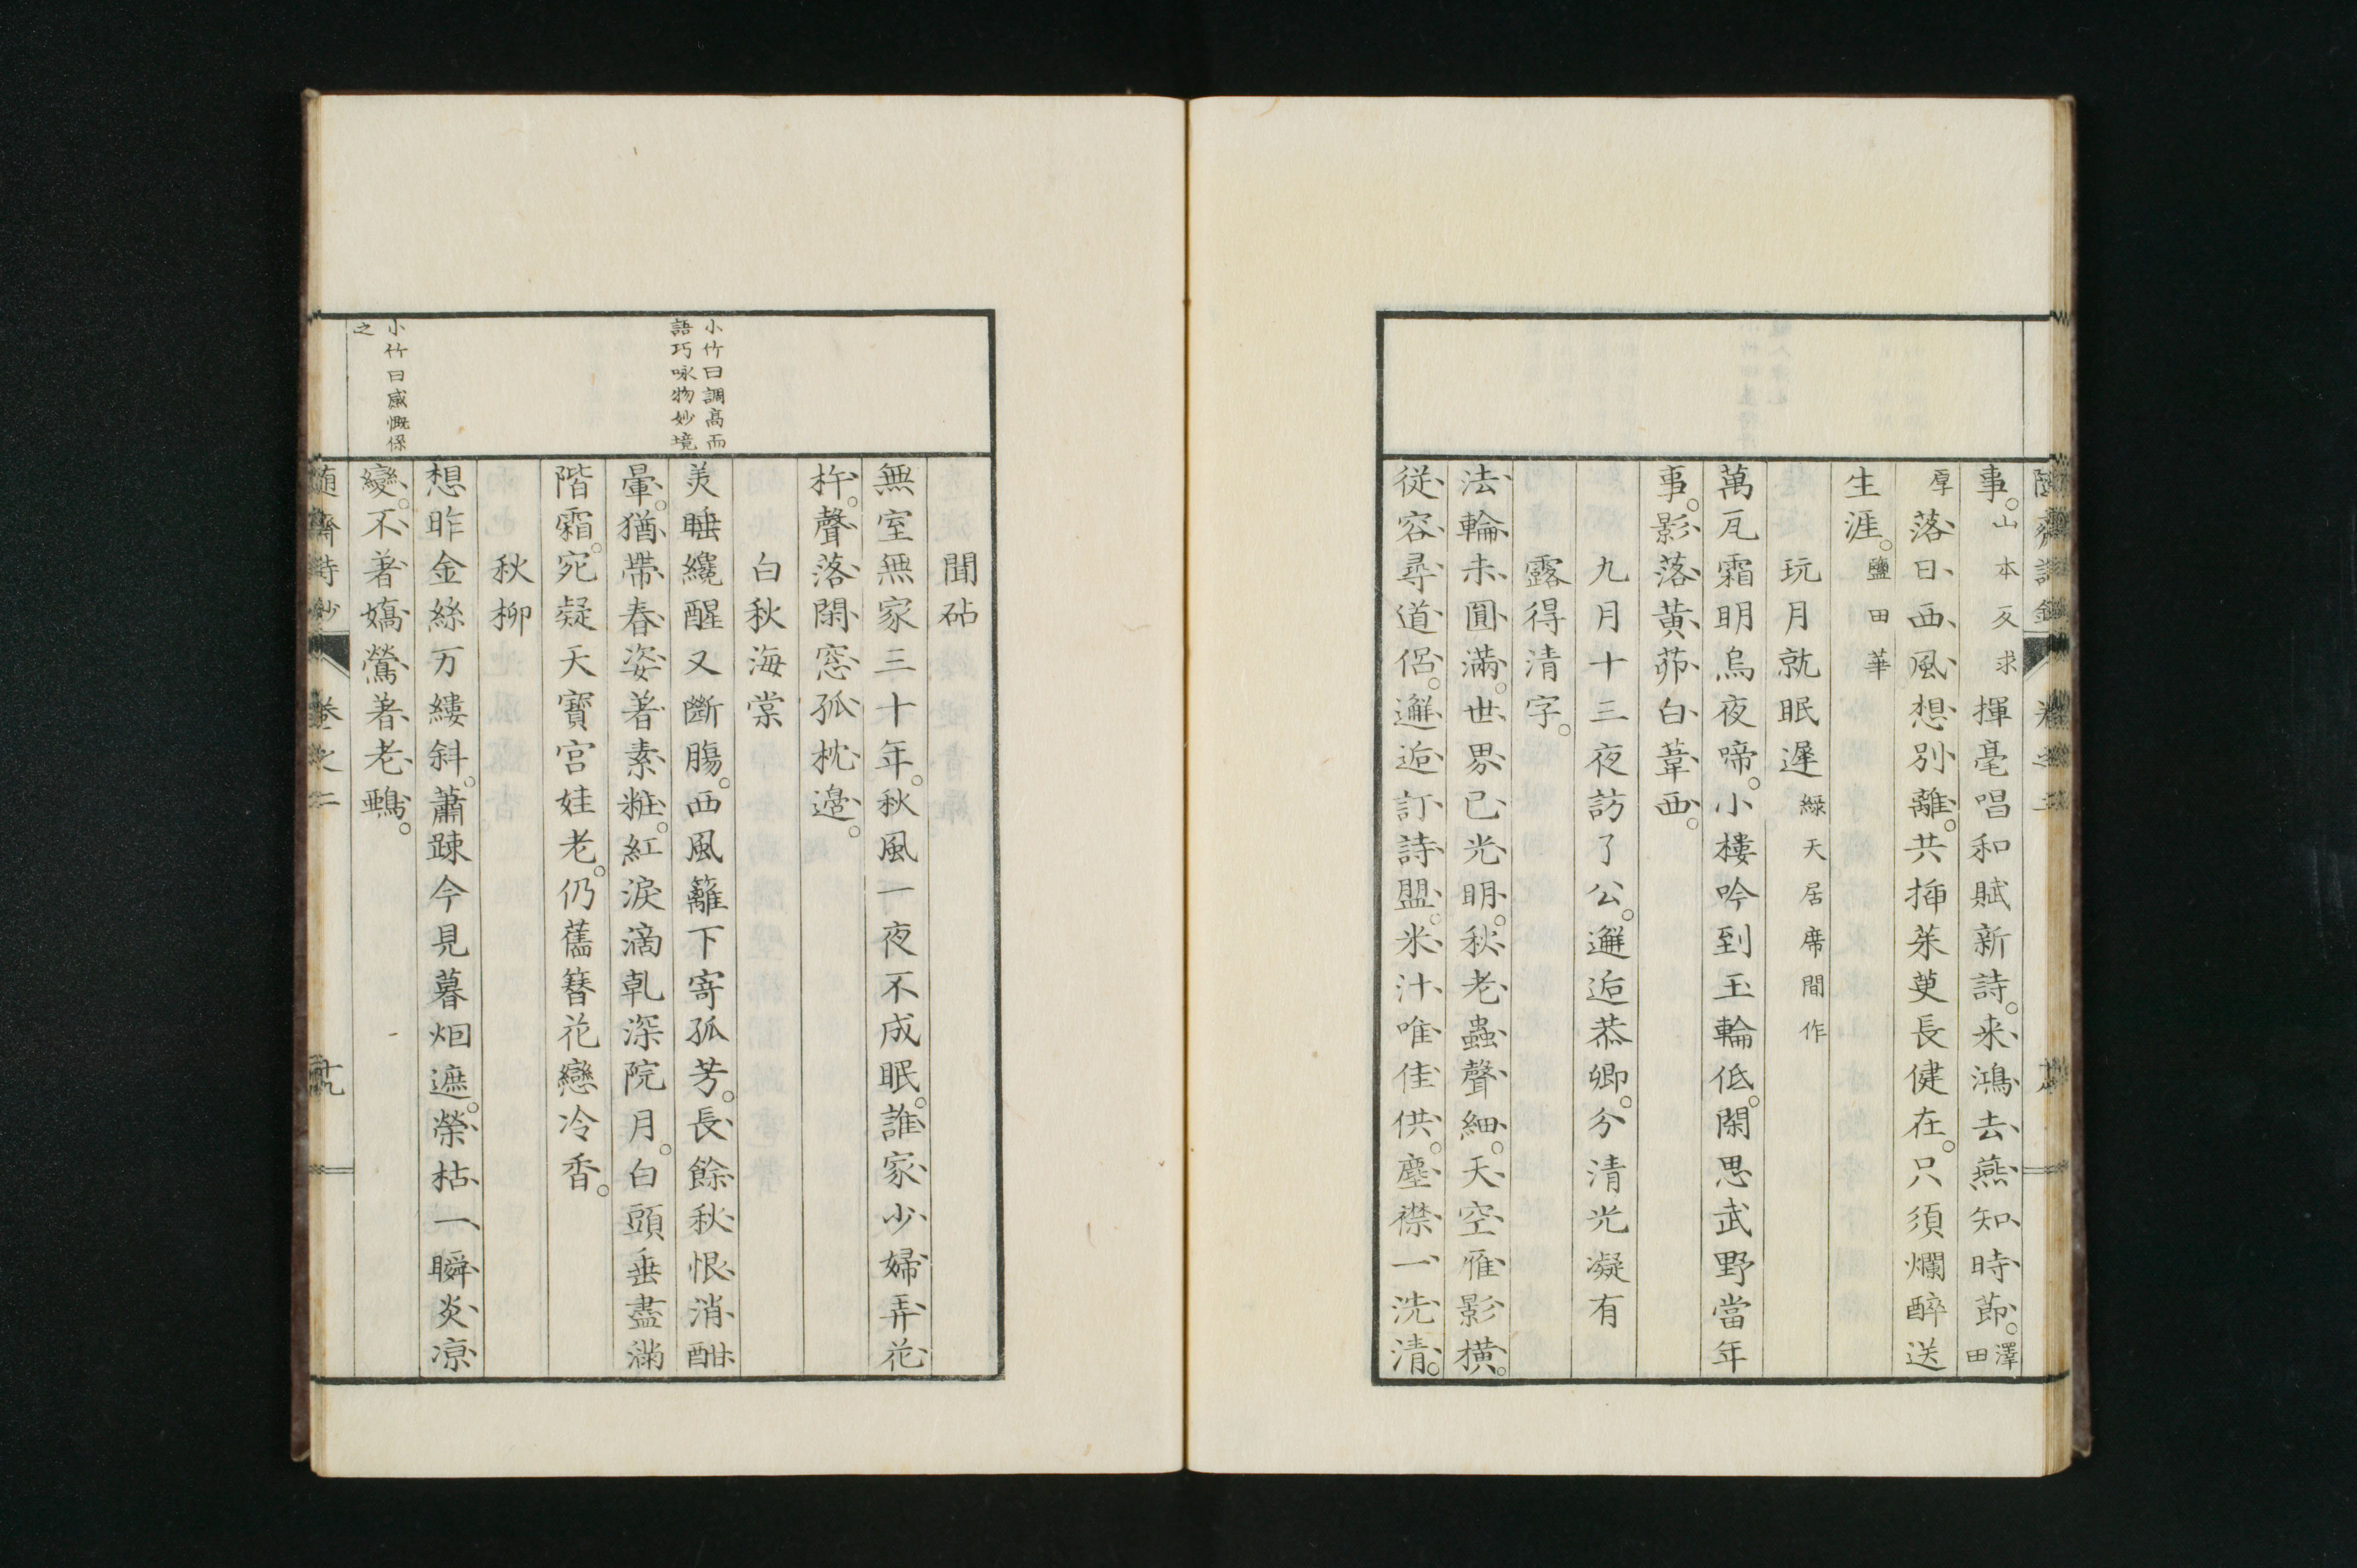 事。山本亥求揮毫唱和賦新詩。来鴻去燕知時節。澤田
厚落日西風想別離。共揷茱萸長健在。只須爛醉送
生涯。鹽田華
玩月就眠遲緑天居席間作
萬瓦霜明烏夜啼。小樓吟到玉輪低。閑思武野當年
事。影落黄茆白葦西。
九月十三夜訪了公。邂逅恭卿。分清光凝有
露得清字。
法輪未圓滿。世界已光明。秋老蟲聲細。天空雁影橫。
従容尋道侶。邂逅訂詩盟。米汁唯佳供。塵襟一洗清。
聞砧
無室無家三十年。秋風一夜不成眠。誰家少婦弄花
杵。聲落閑窓孤枕邊。
白秋海棠
小竹曰調高而
語巧咏物妙境
美睡纔醒又斷腸。西風籬下寄孤芳。長餘秋恨消酣
暈。猶帶春姿著素粧。紅淚滴乾深院月。白頭垂盡滿
階霜。宛疑天寶宮娃老。仍舊簪花戀冷香。
秋柳
想昨金絲万縷斜。蕭踈今見暮烟遮。榮枯一瞬炎凉
小竹曰感慨係
之
變。不著嬌鶯著老鴉。
随齋詩鈔 巻之二 十九